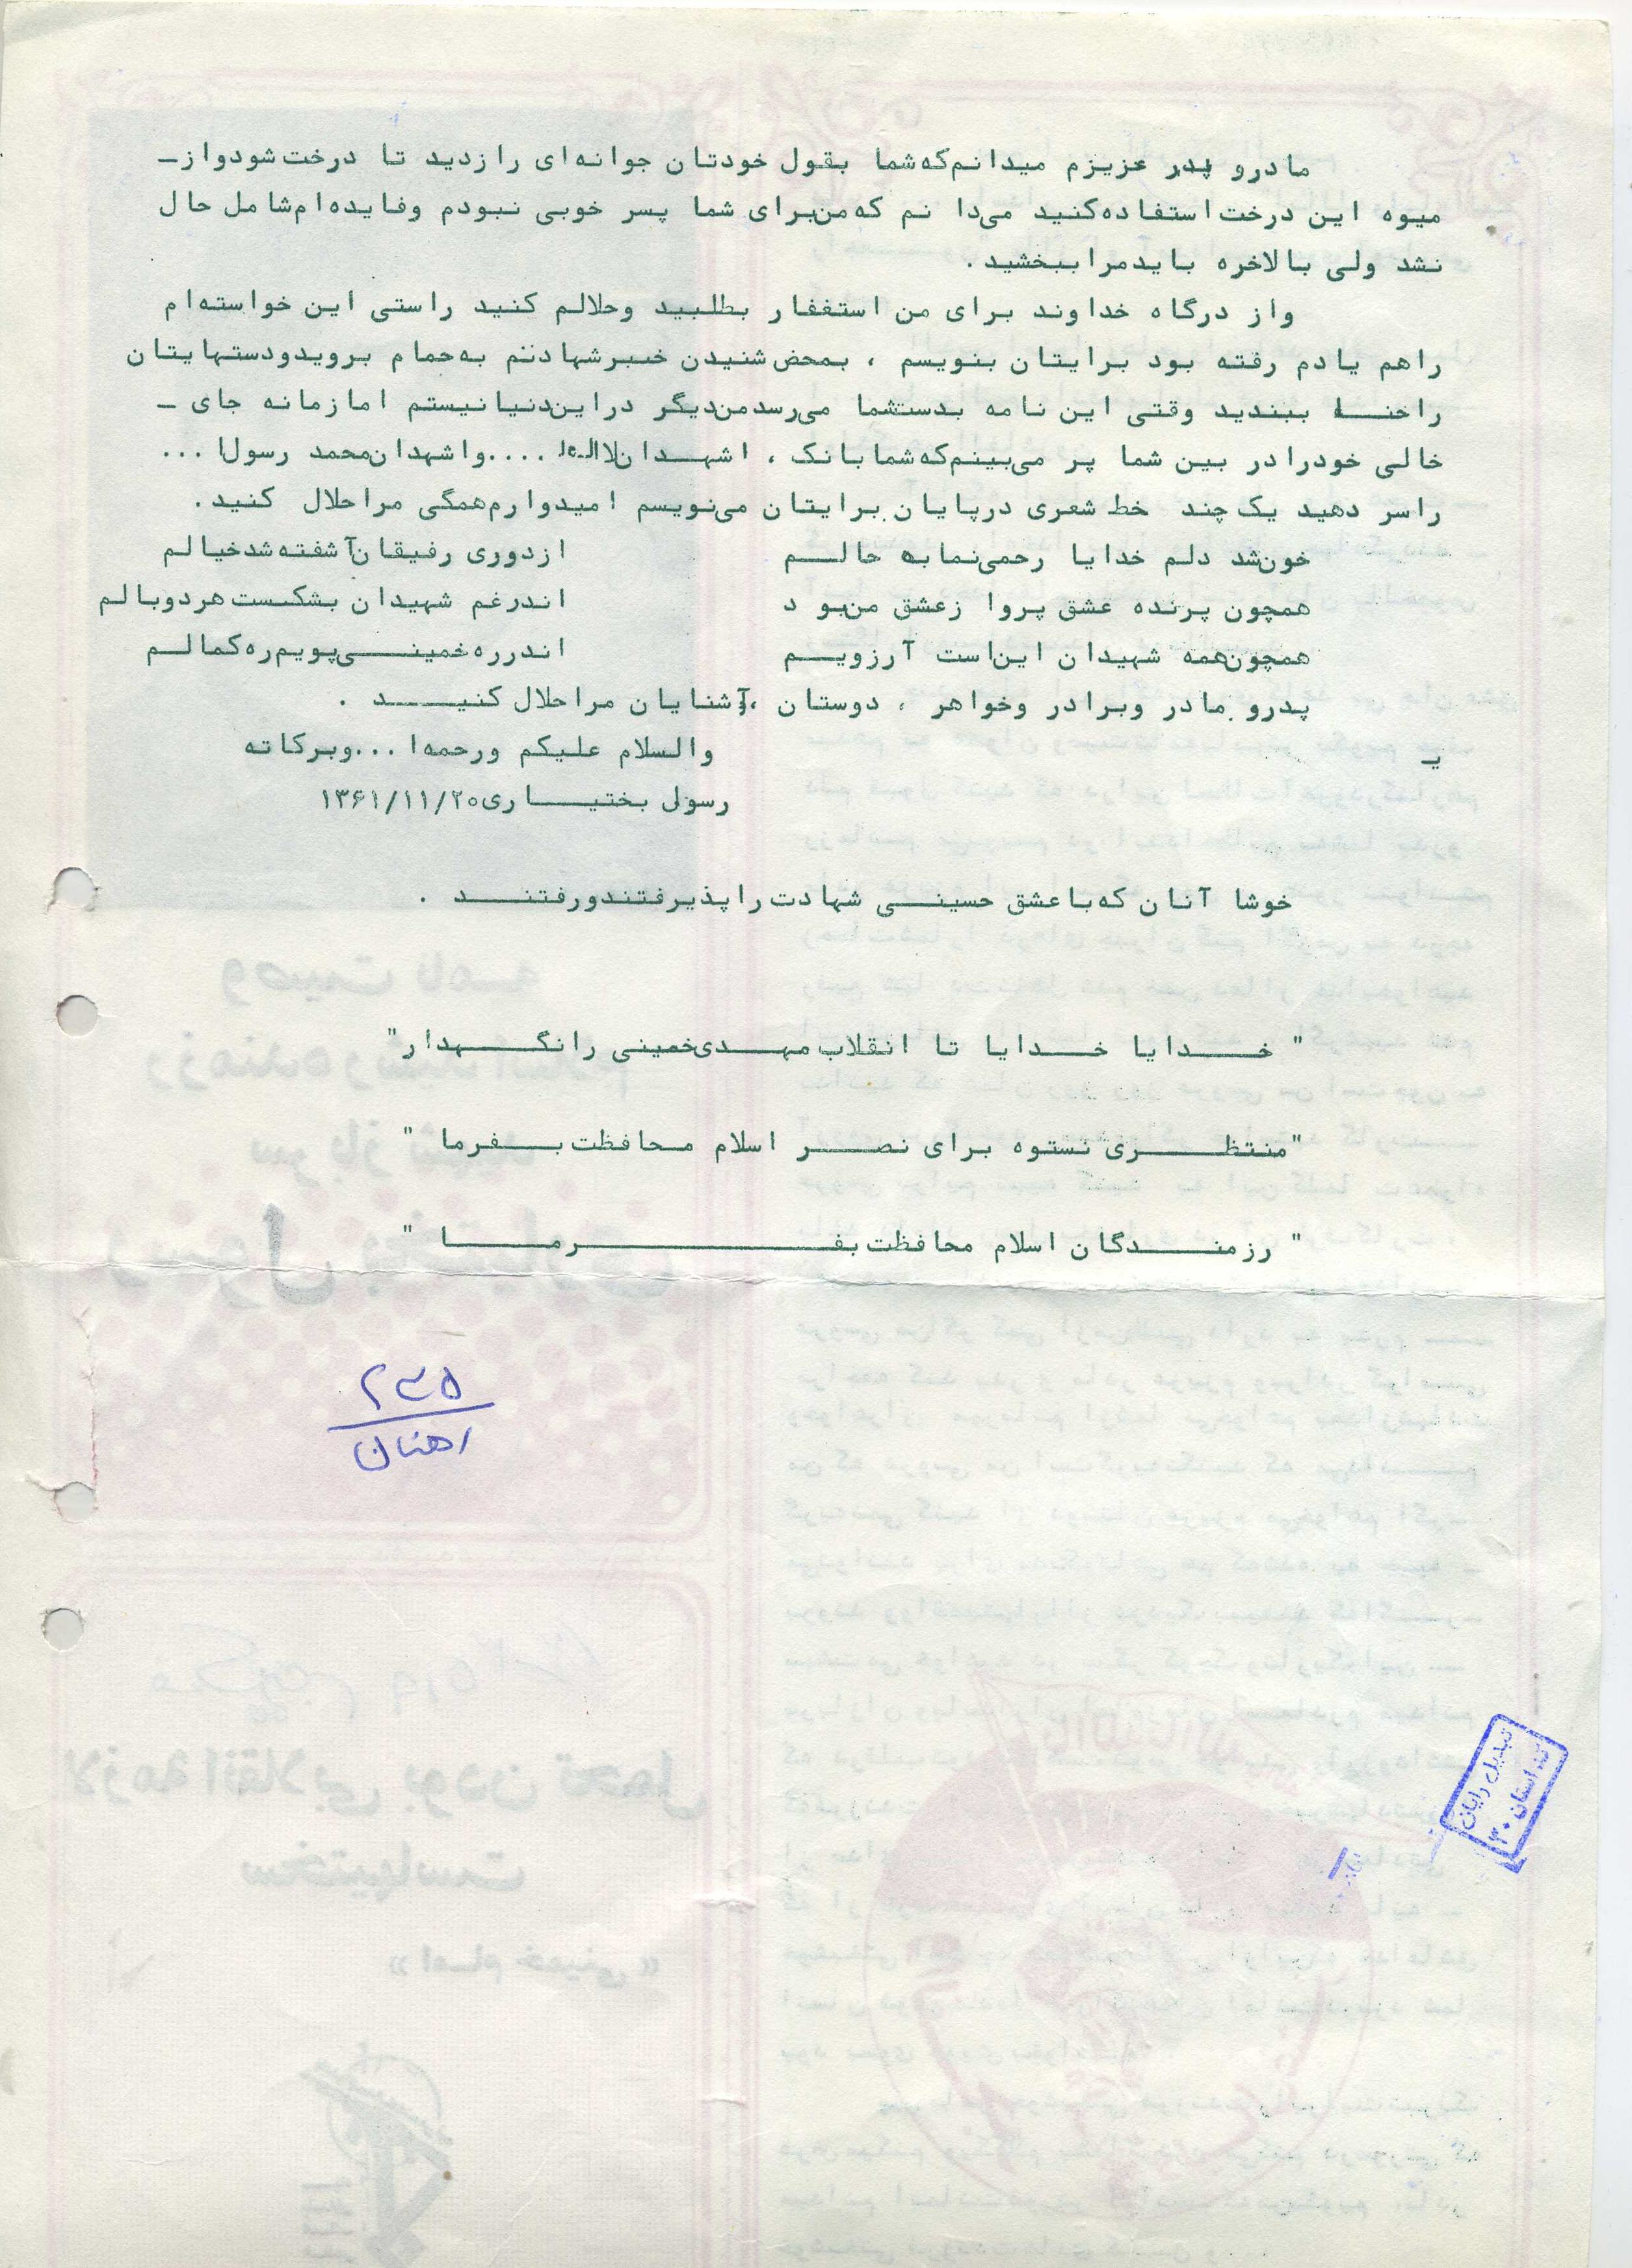 مادرو پدر عزیزم میدانم‌که‌شما بقول خودتان جوانه‌ای رازدید تا درخت‌شودواز_
میوه این درخت‌استفاده‌کنید می‌دا نم که‌من‌برای شما پسر خوبی نبودم وفایده‌ام‌شامل حال
نشد ولی بالاخره بایدمراببخشید .
واز درگاه خداوند برای من استغفار بطلبید وحلالم کنید راستی این خواسته‌ام
راهم یادم رفته بود برایتان بنویسم ، بمحض‌شنیدن خبرشهادتم به‌حمام برویدودستهایتان
راحنا ببندید وقتی این نامه بدست‌شما می‌رسدمن‌دیگر دراین‌دنیانیستم امازمانه جای _
خالی خودرادر بین شما پر می‌بینم‌که‌شمابانک ، اشهدان‌لااله ....واشهدان‌محمد رسول‌ا ...
راسر دهید یک‌چند خط شعری درپایان برایتان می‌نویسم امیدوارم‌همگی مراحلال کنید .
خون‌شد دلم خدایا رحمی‌نمابه حالم ازدوری رفیقان‌آشفته‌شدخیالم
همچون پرنده عشق پروا زعشق من‌بو د اندرغم شهیدان بشکست‌هردوبالم
همچون‌همه شهیدان این‌است آرزویم اندرره‌خمینی‌پویم‌ره‌کمالم
پدرو مادر وبرادر وخواهر ، دوستان ،وآشنایان مراحلال کنید .
والسلام علیکم ورحمه‌ا ...وبرکاته
یـ
رسول بختیاری۱۳۶۱/۱۱/۲۰
خوشا آنان که‌باعشق حسینی شهادت‌راپذیرفتندورفتند .
" خدایا خدایا تا انقلاب‌مهدی‌خمینی رانگهدار"
"منتظری نستوه برای نصر اسلام محافظت‌بفرما "
" رزمندگان اسلام محافظت‌بفرما "
۲۳۵
اهنان
تبدیل رایان
کد استان ۳۰